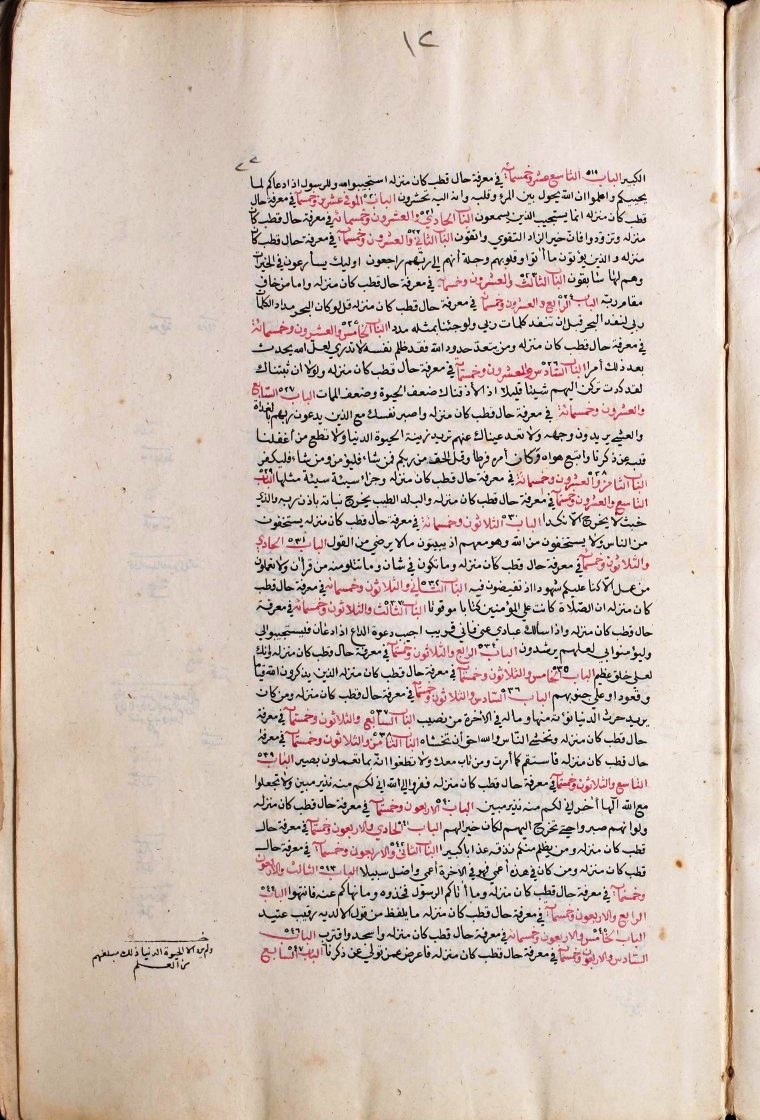 ١٢
الكبير الباب ٥١٩ التاسع عشر وخمسمائة في معرفة حال قطب كان منزله استجيبوا لله وللرسول اذا دعاكم لما
يحييكم واعلموا ان الله يحول بين المرء وقلبه وانه اليه تحشرون الباب ٥٢٠ الموفي عشرين وخمسمائة في معرفة حال
قطب كان منزله انما يستجيب الذين يسمعون الباب ٥٢١ الحادي والعشرون وخمسمائة في معرفة حال قطب كان
منزله وتزودوا فان خير الزاد التقوي واتقون الباب ٥٢٢ الثاني والعشرون وخمسمائة في معرفة حال قطب كان
منزله والذين يؤتون ما اتوا وقلوبهم وجلة أنهم إلى ربهم راجعون اوليك يسارعون في الخيرات
وهم لها سابقون الباب ٥٢٣ الثالث والعشرون وخمسمائة في معرفة حال قطب كان منزله واما من خاف
مقام ربه الباب ٥٢٤ الرابع والعشرون وخمسمائة في معرفة حال قطب كان منزله قل لو كان البحر مدادا لكلمات
ربي لنفد البحر قبل ان تنفد كلمات ربي ولو جئنا بمثله مددا الباب ٥٢٥ الخامس والعشرون وخمسمائة
في معرفة حال قطب كان منزله ومن يتعد حدود الله فقد ظلم نفسه لا تدري لعل الله يحدث
بعد ذلك أمرا الباب ٥٢٦ السادس والعشرون وخمسمائة في معرفة حال قطب كان منزله ولولا ان ثبتناك
لقد كدت تركن اليهم شيئا قليلا اذا لأذقناك ضعف الحيوة وضعف الممات الباب ٥٢٧ السابع
والعشرون وخمسمائة في معرفة حال قطب كان منزله واصبر نفسك مع الذين يدعون ربهم بالغداة
والعشي يريدون وجهه ولا تعد عيناك عنهم تريد زينة الحيوة الدنيا ولا تطع من أغفلنا
قلبه عن ذكرنا واتبع هواه وكان أمره فرطا وقل الحق من ربكم فمن شاء فليؤمن ومن شاء فليكفر
الباب ٥٢٨ الثامن والعشرون وخمسمائة في معرفة حال قطب كان منزله وجزاء سيئة سيئة مثلها الباب ٥٢٩
التاسع والعشرون وخمسمائة في معرفة حال قطب كان منزله والبلد الطيب يخرج نباته باذن ربه والذي
خبث لا يخرج الا نكدا الباب ٥٣٠ الثلاثون وخمسمائة في معرفة حال قطب كان منزله يستخفون
من الناس ولا يستخفون من الله وهو معهم اذ يبيتون ما لا يرضي من القول الباب ٥٣١ الحادي
والثلاثون وخمسمائة في معرفة حال قطب كان منزله وما تكون في شان وما تتلو منه من قرآن ولا تعملون
من عمل الا كنا عليكم شهودا اذ تفيضون فيه الباب ٥٣٢ الثاني والثلاثون وخمسمائة في معرفة حال قطب
كان منزله ان الصلاة كانت علي المؤمنين كتابا موقوتا الباب ٥٣٣ الثالث والثلاثون وخمسمائة في معرفة
حال قطب كان منزله واذا سألك عبادي عني فاني قريب اجيب دعوة الداع اذا دعان فليستجيبوا لي
وليؤمنوا بي لعلهم يرشدون الباب ٥٣٤ الرابع والثلاثون وخمسمائة في معرفة حال قطب كان منزله وانك
لعلى خلق عظيم الباب ٥٣٥ الخامس والثلاثون وخمسمائة في معرفة حال قطب كان منزله الذين يذكرون الله قياما
وقعودا وعلى جنوبهم الباب ٥٣٦ السادس والثلاثون وخمسمائة في معرفة حال قطب كان منزله ومن كان
يريد حرث الدنيا نؤته منها وما له في الاخرة من نصيب الباب ٥٣٧ السابع والثلاثون وخمسمائة في معرفة
حال قطب كان منزله وتخشى الناس والله احق ان تخشاه الباب ٥٣٨ الثامن والثلاثون وخمسمائة في معرفة
حال قطب كان منزله فاستقم كما أمرت ومن تاب معك ولا تطغوا انه بما تعملون بصير الباب ٥٣٩
التاسع والثلاثون وخمسمائة في معرفة حال قطب كان منزله ففروا إلى الله اني لكم منه نذير مبين ولا تجعلوا
مع الله الها آخر اني لكم منه نذير مبين الباب ٥٤٠ الاربعون وخمسمائة في معرفة حال قطب كان منزله
ولو انهم صبروا حتى تخرج اليهم لكان خيرا لهم الباب ٥٤١ الحادي والاربعون وخمسمائة في معرفة حال
قطب كان منزله ومن يظلم منكم نذقه عذابا كبيرا الباب ٥٤٢ الثاني والاربعون وخمسمائة في معرفة حال
قطب كان منزله ومن كان في هذه أعمى فهو في الآخرة أعمى واضل سبيلا الباب ٥٤٣ الثالث والاربعون
وخمسمائة في معرفة حال قطب كان منزله وما أتاكم الرسول فخذوه وما نهاكم عنه فانتهوا الباب ٥٤٤
الرابع والاربعون وخمسمائة في معرفة حال قطب كان منزله ما يلفظ من قول الا لديه رقيب عتيد
الباب ٥٤٥ الخامس والاربعون وخمسمائة في معرفة حال قطب كان منزله واسجد واقترب الباب ٥٤٦
السادس والاربعون وخمسمائة في معرفة حال قطب كان منزله فاعرض عمن تولي عن ذكرنا الباب ٥٤٧ السابع
ولم يرد الا الحيوة الدنيا ذلك مبلغهم
من العلم